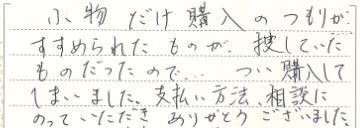 小物だけ購入のつもりが、
すすめられたものが、捜していた
ものだったので、つい購入して
しまいました。支払い方法、相談に
のっていただきありがとうございました。